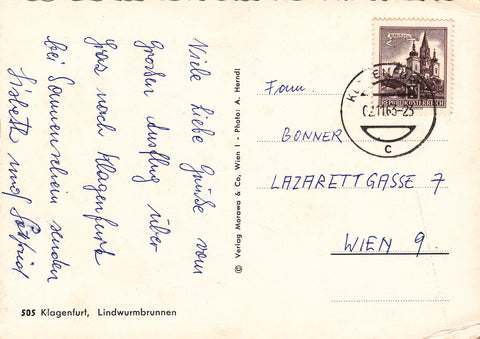 Viele liebe Grüße vom
Großen Ausflug über
Graz nach Klagenfurt
bei Sonnenschein senden
Lisbeth und
Fam.
BONNER
LAZARETTGASSE 7
WIEN 9.
REPUBLIK ÖSTERREICH
KLAGENFURT
02.11.63-23
c
© Verlag Morawa & Co, Wien I - Photo: A. Herndl
505 Klagenfurt, Lindwurmbrunnen